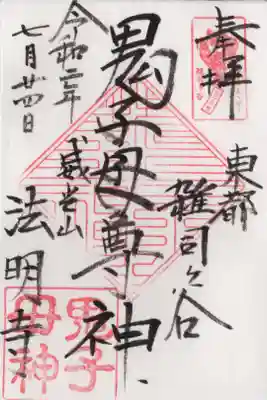 奉拝
東都
雑司ヶ谷
鬼子母尊神
威光山
法明寺
令和二年
七月廿四日
鬼子
母神